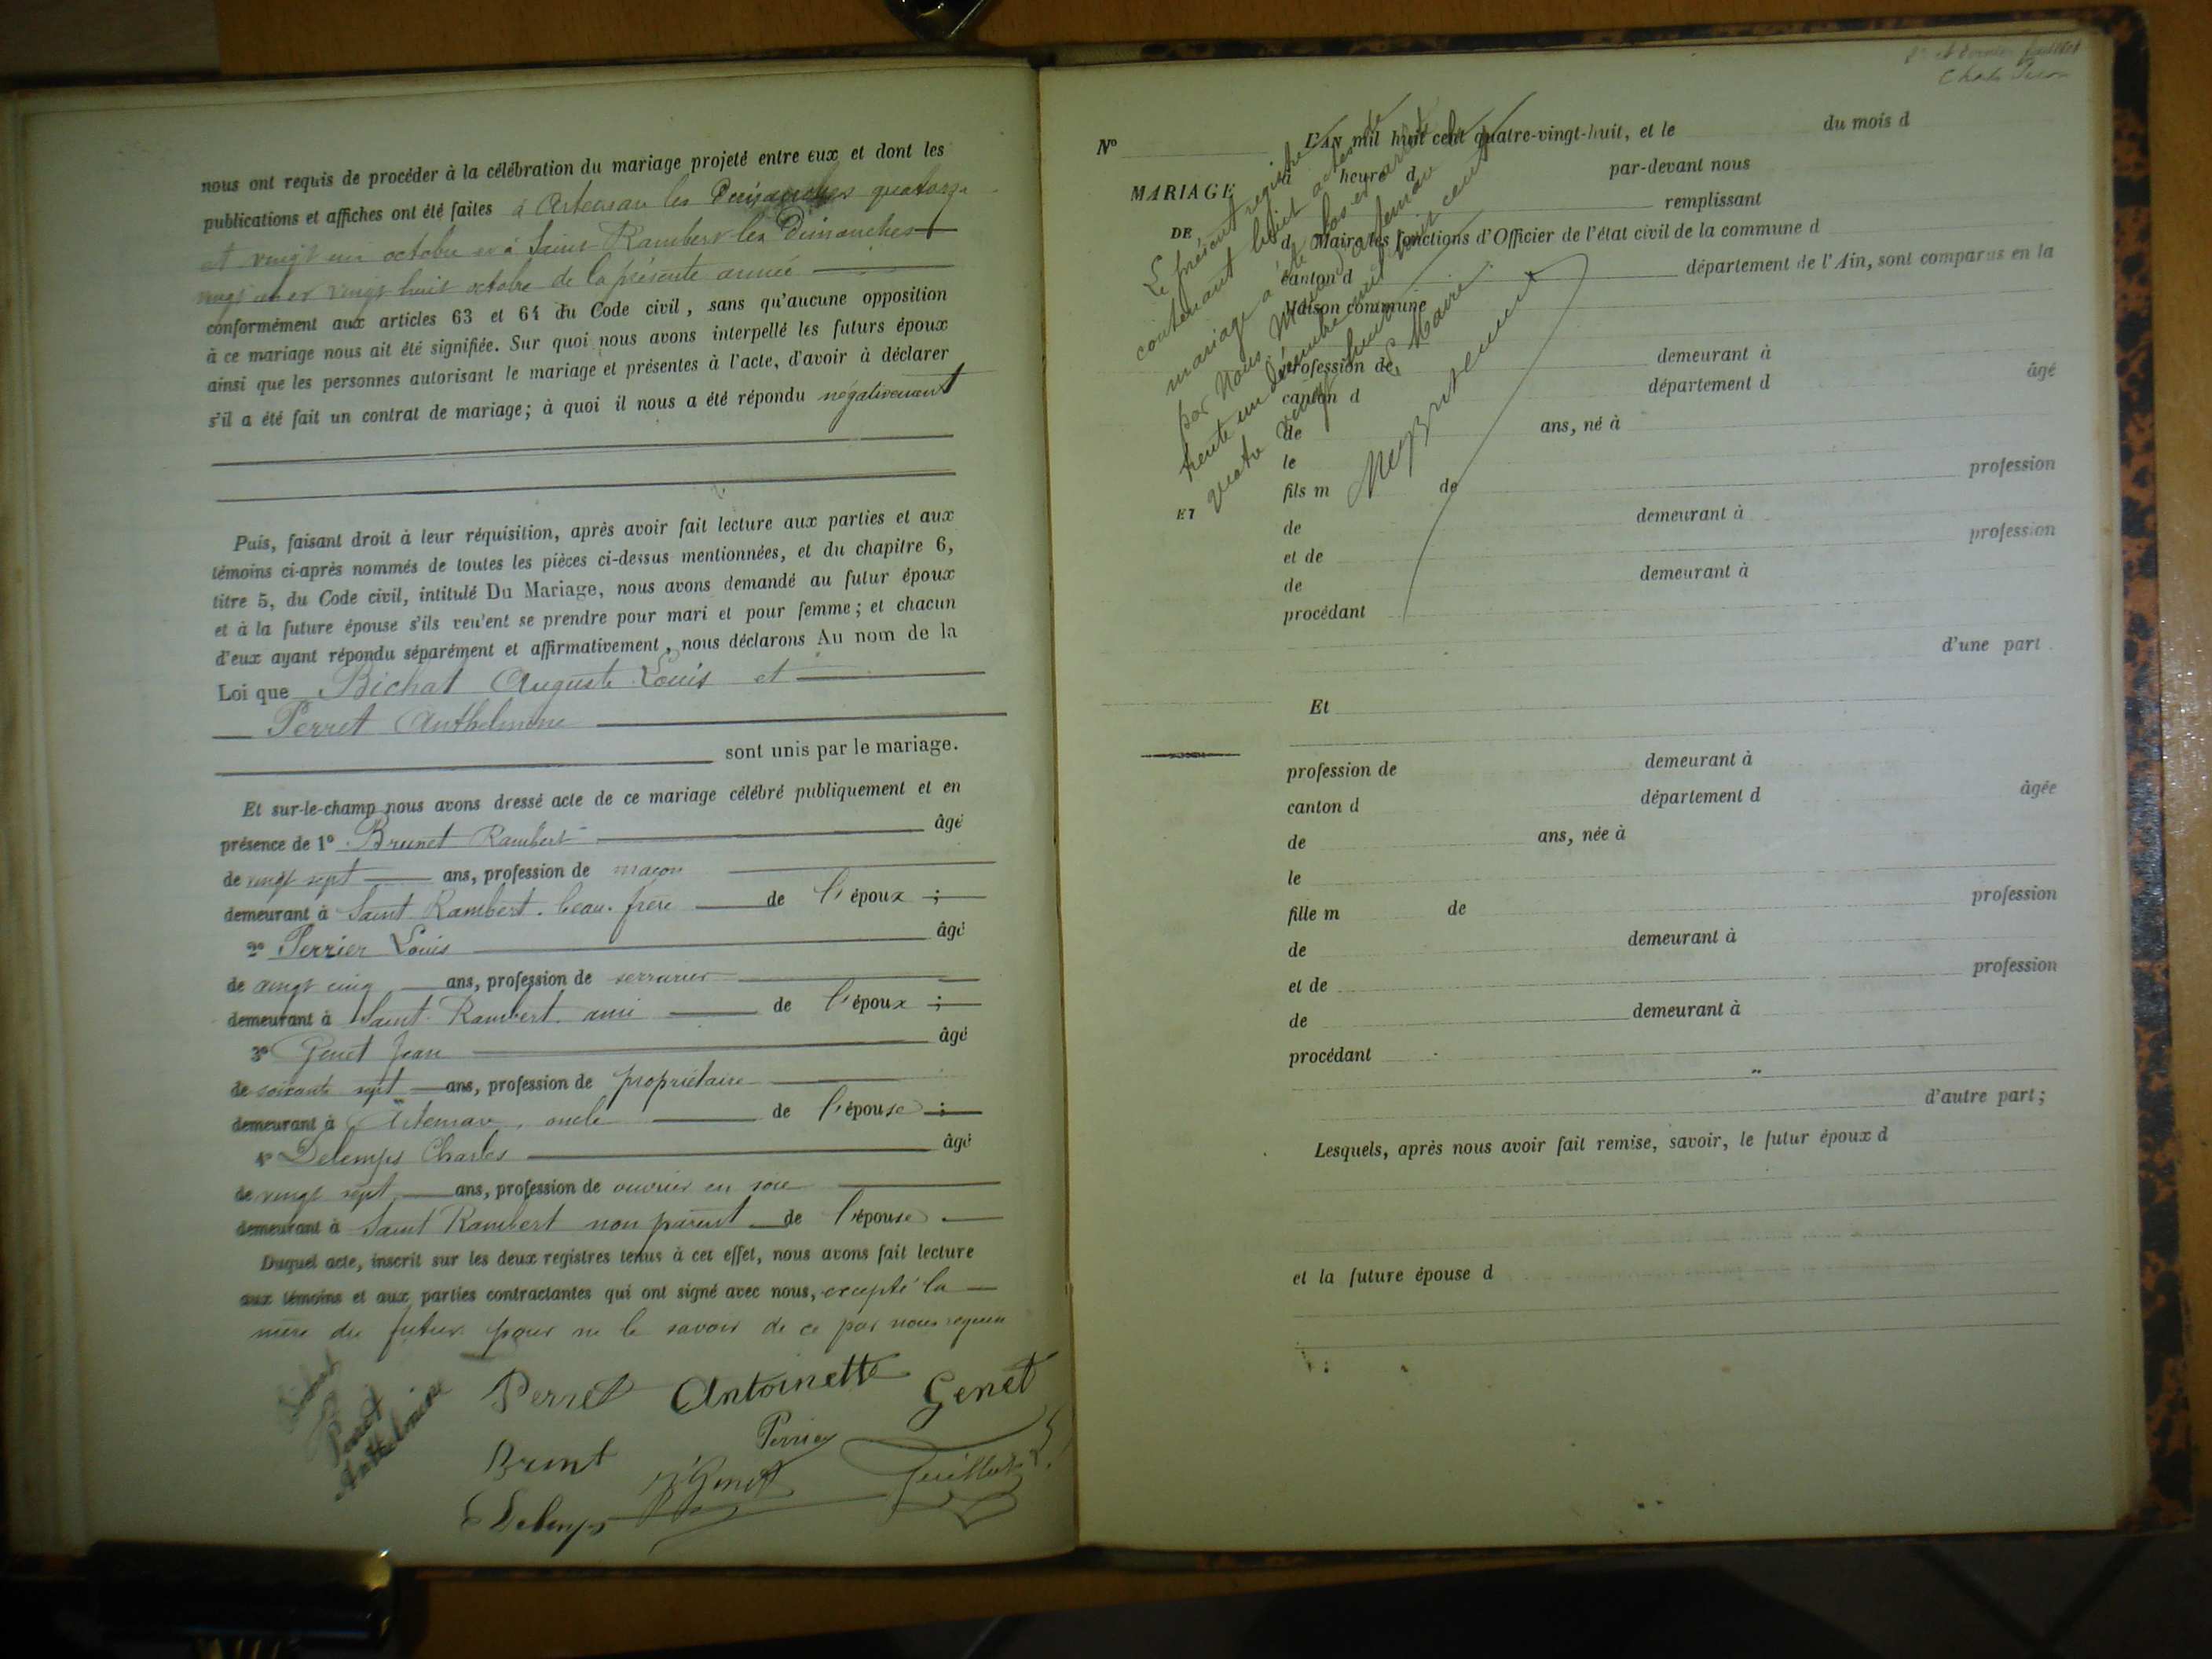 nous ont requis de procéder à la célébration du mariage projeté entre eux et dont les
publications et affiches ont été faites à Artemare les Dimanches quatorze
et vingt un octobre et à Saint Rambert les Dimanches
vingt un et vingt huit octobre de la présente année
conformément aux articles 63 et 64 du Code civil, sans qu'aucune opposition
à ce mariage nous ait été signifiée. Sur quoi nous avons interpellé les futurs époux
ainsi que les personnes autorisant le mariage et présentes à l'acte, d'avoir à déclarer
s'il a été fait un contrat de mariage; à quoi il nous a été répondu négativement
Puis, faisant droit à leur réquisition, après avoir fait lecture aux parties et aux
témoins ci-après nommés de toutes les pièces ci-dessus mentionnées, et du chapitre 6,
titre 5, du Code civil, intitulé Du Mariage, nous avons demandé au futur époux
et à la future épouse s'ils veu'ent se prendre pour mari et pour femme; et chacun
d'eux ayant répondu séparément et affirmativement, nous déclarons Au nom de la
Loi que Bichat Auguste Louis et
Perret Anthelmine
sont unis par le mariage.
Et sur-le-champ nous avons dressé acte de ce mariage célébré publiquement et en
présence de 1° Brunet Rambert âgé
de vingt sept ans, profession de maçon
demeurant à Saint Rambert. beau-frère de l'époux ;
2° Perrier Louis âgé
de vingt cinq ans, profession de serrurier
demeurant à Saint Rambert ami de l'époux ;
3° Genet Jean âgé
de soixante sept ans, profession de propriétaire
demeurant à Artemare, oncle de l'épouse ;
4° Delemps Charles âgé
de vingt sept ans, profession de ouvrier en soie
demeurant à Saint Rambert non parent de l'épouse
Duquel acte, inscrit sur les deux registres tenus à cet effet, nous avons fait lecture
aux témoins et aux parties contractantes qui ont signé avec nous, excepté la
mère du futur pour ne le savoir de ce par nous requise
Perret Antoinette Genet
Perret
Anthelmine
Brunet Perrier
Genet
Delemps
N° L'AN mil huit cent quatre-vingt-huit, et le du mois d
à heure d par-devant nous
MARIAGE
remplissant
DE
d Maire les fonctions d'Officier de l'état civil de la commune d
canton d département de l'Ain, sont comparus en la
Maison commune
profession de demeurant à
canton d département d âgé
de ans, né à
le
fils m de profession
ET
de demeurant à
et de profession
de demeurant à
procédant
d'une part
Le présent registre
contenant huit actes de
mariage a été clos et arrêté
par Nous Maire d'Artemare le
trente un décembre mil huit cent
quatre vingt huit
Le Maire
Et
profession de demeurant à
canton d département d âgée
de ans, née à
le
fille m de profession
de demeurant à
et de profession
de demeurant à
procédant
d'autre part;
Lesquels, après nous avoir fait remise, savoir, le futur époux d
et la future épouse d